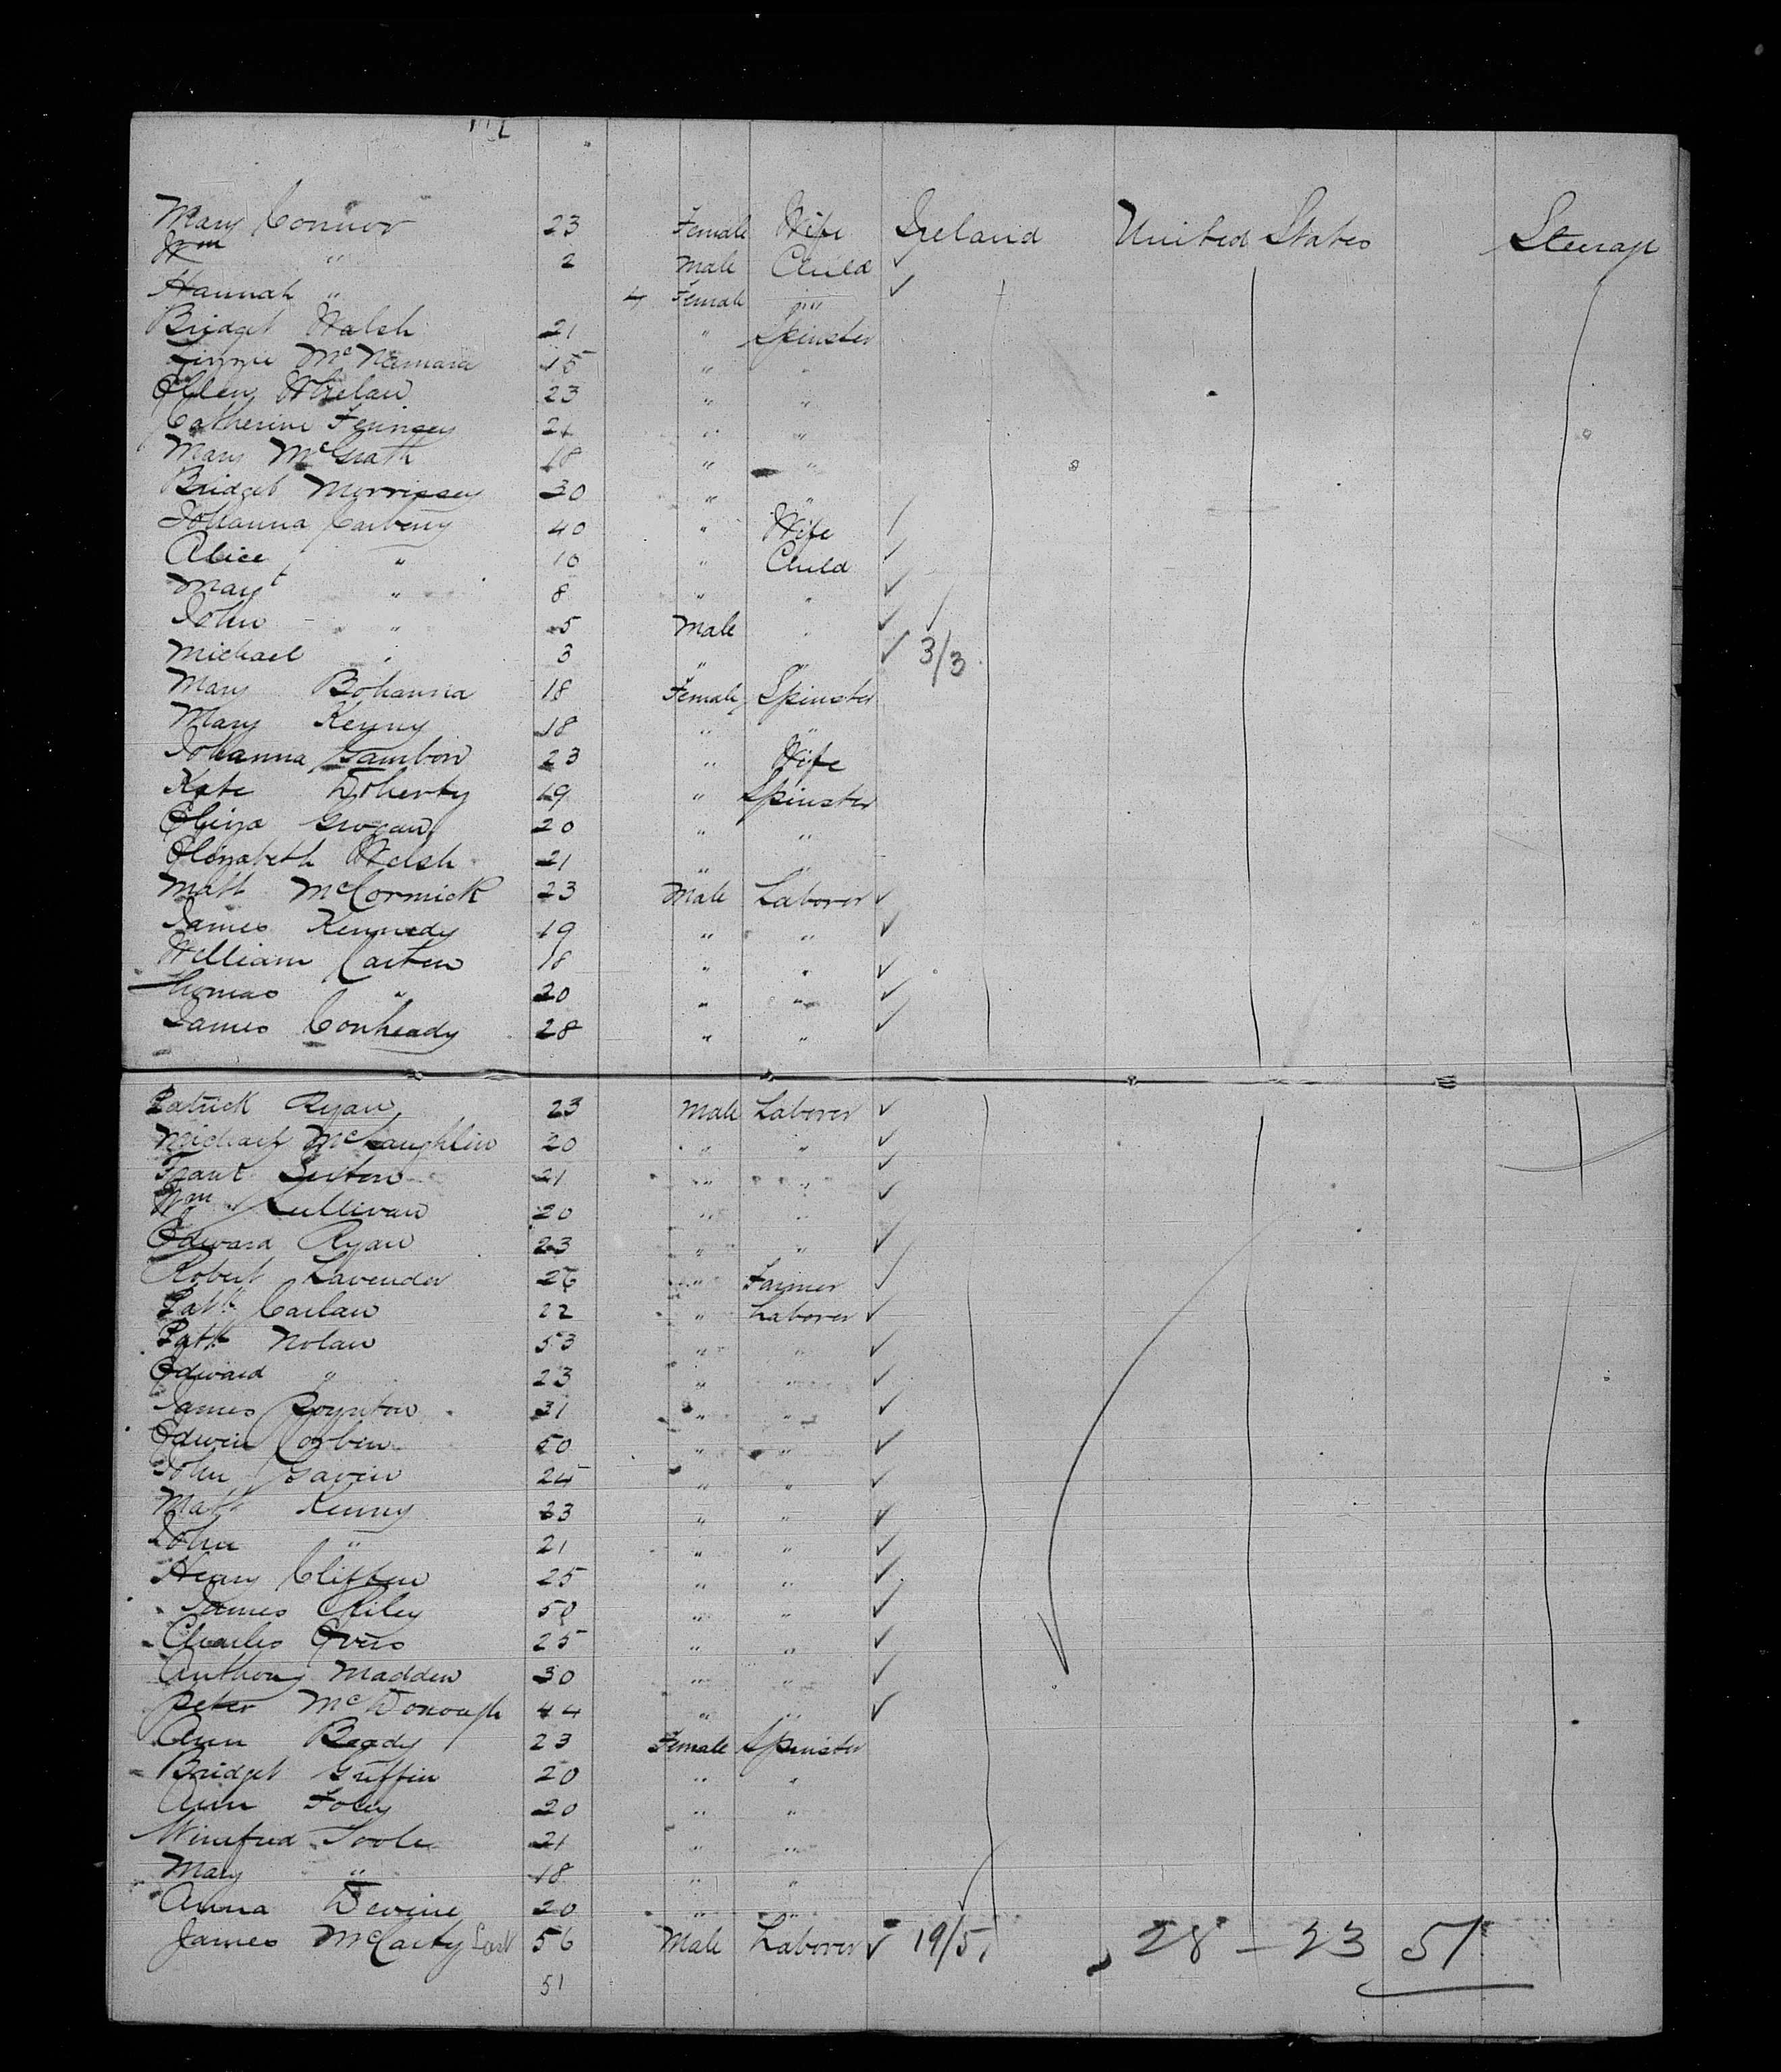 Mary Connor 23 Female Wife Ireland United States Steerage
Wm " 2 Male Child ✓
Hannah " 4 Female " ✓
Bridget Walsh 21 " Spinster
McNamara 15 " "
Ellen Whelan 23 " "
Catherine 21 " "
Mary McGrath 18 " "
Bridget Morrissey 30 " "
Johanna 40 " Wife
Alice " 10 " Child ✓
Margt " 8 " " ✓
John " 5 Male " ✓
Michael " 3 " " ✓ 3/3
Mary Bohanna 18 Female Spinster
Mary Kenny 18 " "
Johanna Gambon 23 " Wife
Kate Doherty 19 " Spinster
Eliza Grogan 20 " "
Elizabeth Welsh 21 " "
Matt McCormick 23 Male Laborer ✓
James Kennedy 19 " " ✓
William Carten 18 " " ✓
Thomas " 20 " " ✓
James Conheady 28 " " ✓
Patrick Ryan 23 Male Laborer ✓
Michael McLaughlin 20 " " ✓
Frank Sexton 21 " " ✓
Wm Sullivan 20 " " ✓
Edward Ryan 23 " " ✓
Robert Lavender 26 " Farmer ✓
Patk 22 " Laborer ✓
Patk Nolan 53 " " ✓
Edward " 23 " " ✓
James Boynton 31 " " ✓
Edwin Corbin 50 " " ✓
John Gavin 24 " " ✓
Matt Kenny 23 " " ✓
John " 21 " " ✓
Henry Clifton 25 " " ✓
James Riley 50 " " ✓
Charles 25 " " ✓
Anthony Madden 30 " " ✓
Peter McDonough 44 " " ✓
Ann Brady 23 Female Spinster
Bridget Griffin 20 " "
Ann Foley 20 " "
Winefred Toole 21 " "
Mary " 18 " "
Anna Devine 20 " "
James McCarty 56 Male Laborer ✓ 19/5 28 – 23 51
51